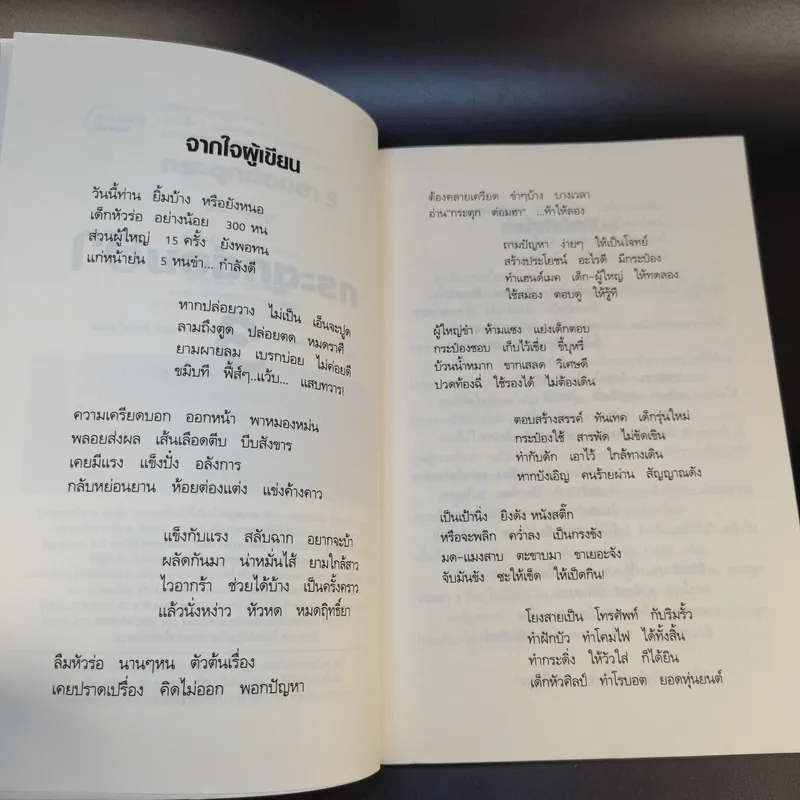 จากใจผู้เขียน
วันนี้ท่าน ยิ้มบ้าง หรือยังหนอ
เด็กหัวร่อ อย่างน้อย 300 หน
ส่วนผู้ใหญ่ 15 ครั้ง ยังพอทน
แก่หน้าย่น 5 หนขำ... กำลังดี
หากปล่อยวาง ไม่เป็น เอ็นจะปูด
ลามถึงตูด ปล่อยตด หมดราศี
ยามผายลม เบรกบ่อย ไม่ค่อยดี
ขมิบที ฟี้ส์ๆ..แว้บ... แสบทวาร!
ความเครียดบอก ออกหน้า พาหมองหม่น
พลอยส่งผล เส้นเลือดตีบ บีบสังขาร
เคยมีแรง แข็งปั๋ง อลังการ
กลับหย่อนยาน ห้อยต่องแต่ง แข่งค้างคาว
แข็งกับแรง สลับฉาก อยากจะบ้า
ผลัดกันมา น่าหมั่นไส้ ยามใกล้สาว
ไวอากร้า ช่วยได้บ้าง เป็นครั้งคราว
แล้วนั่งหง่าว หัวหด หมดฤทธิ์ยา
ลืมหัวร่อ นานๆหน ตัวต้นเรื่อง
เคยปราดเปรื่อง คิดไม่ออก พอกปัญหา
ต้องคลายเครียด ขำๆบ้าง บางเวลา
อ่าน"กระตุก ต่อมฮา" ...ท้าให้ลอง
ถามปัญหา ง่ายๆ ให้เป็นโจทย์
สร้างประโยชน์ อะไรดี มีกระป๋อง
ทำแฮนด์เมค เด็ก-ผู้ใหญ่ ให้ทดลอง
ใช้สมอง ตอบดู ให้รู้ที
ผู้ใหญ่ขำ ห้ามแซง แย่งเด็กตอบ
กระป๋องชอบ เก็บไว้เขี่ย ขี้บุหรี่
บ้วนน้ำหมาก ขากเสลด วิเศษดี
ปวดท้องฉี่ ใช้รองได้ ไม่ต้องเดิน
ตอบสร้างสรรค์ ทันเทค เด็กรุ่นใหม่
กระป๋องใช้ สารพัด ไม่ขัดเขิน
ทำกับดัก เอาไว้ ใกล้ทางเดิน
หากบังเอิญ คนร้ายผ่าน สัญญาณดัง
เป็นเป้านิ่ง ยิงดัง หนังสติ๊ก
หรือจะพลิก คว่ำลง เป็นกรงขัง
มด-แมงสาบ ตะขาบมา ขาเยอะจัง
จับมันขัง ซะให้เข็ด ให้เป็ดกิน!
โยงสายเป็น โทรศัพท์ กับริมรั้ว
ทำฝักบัว ทำโคมไฟ ได้ทั้งสิ้น
ทำกระดิ่ง ให้วัวใส่ ก็ได้ยิน
เด็กหัวศิลป์ ทำโรบอต ยอดหุ่นยนต์